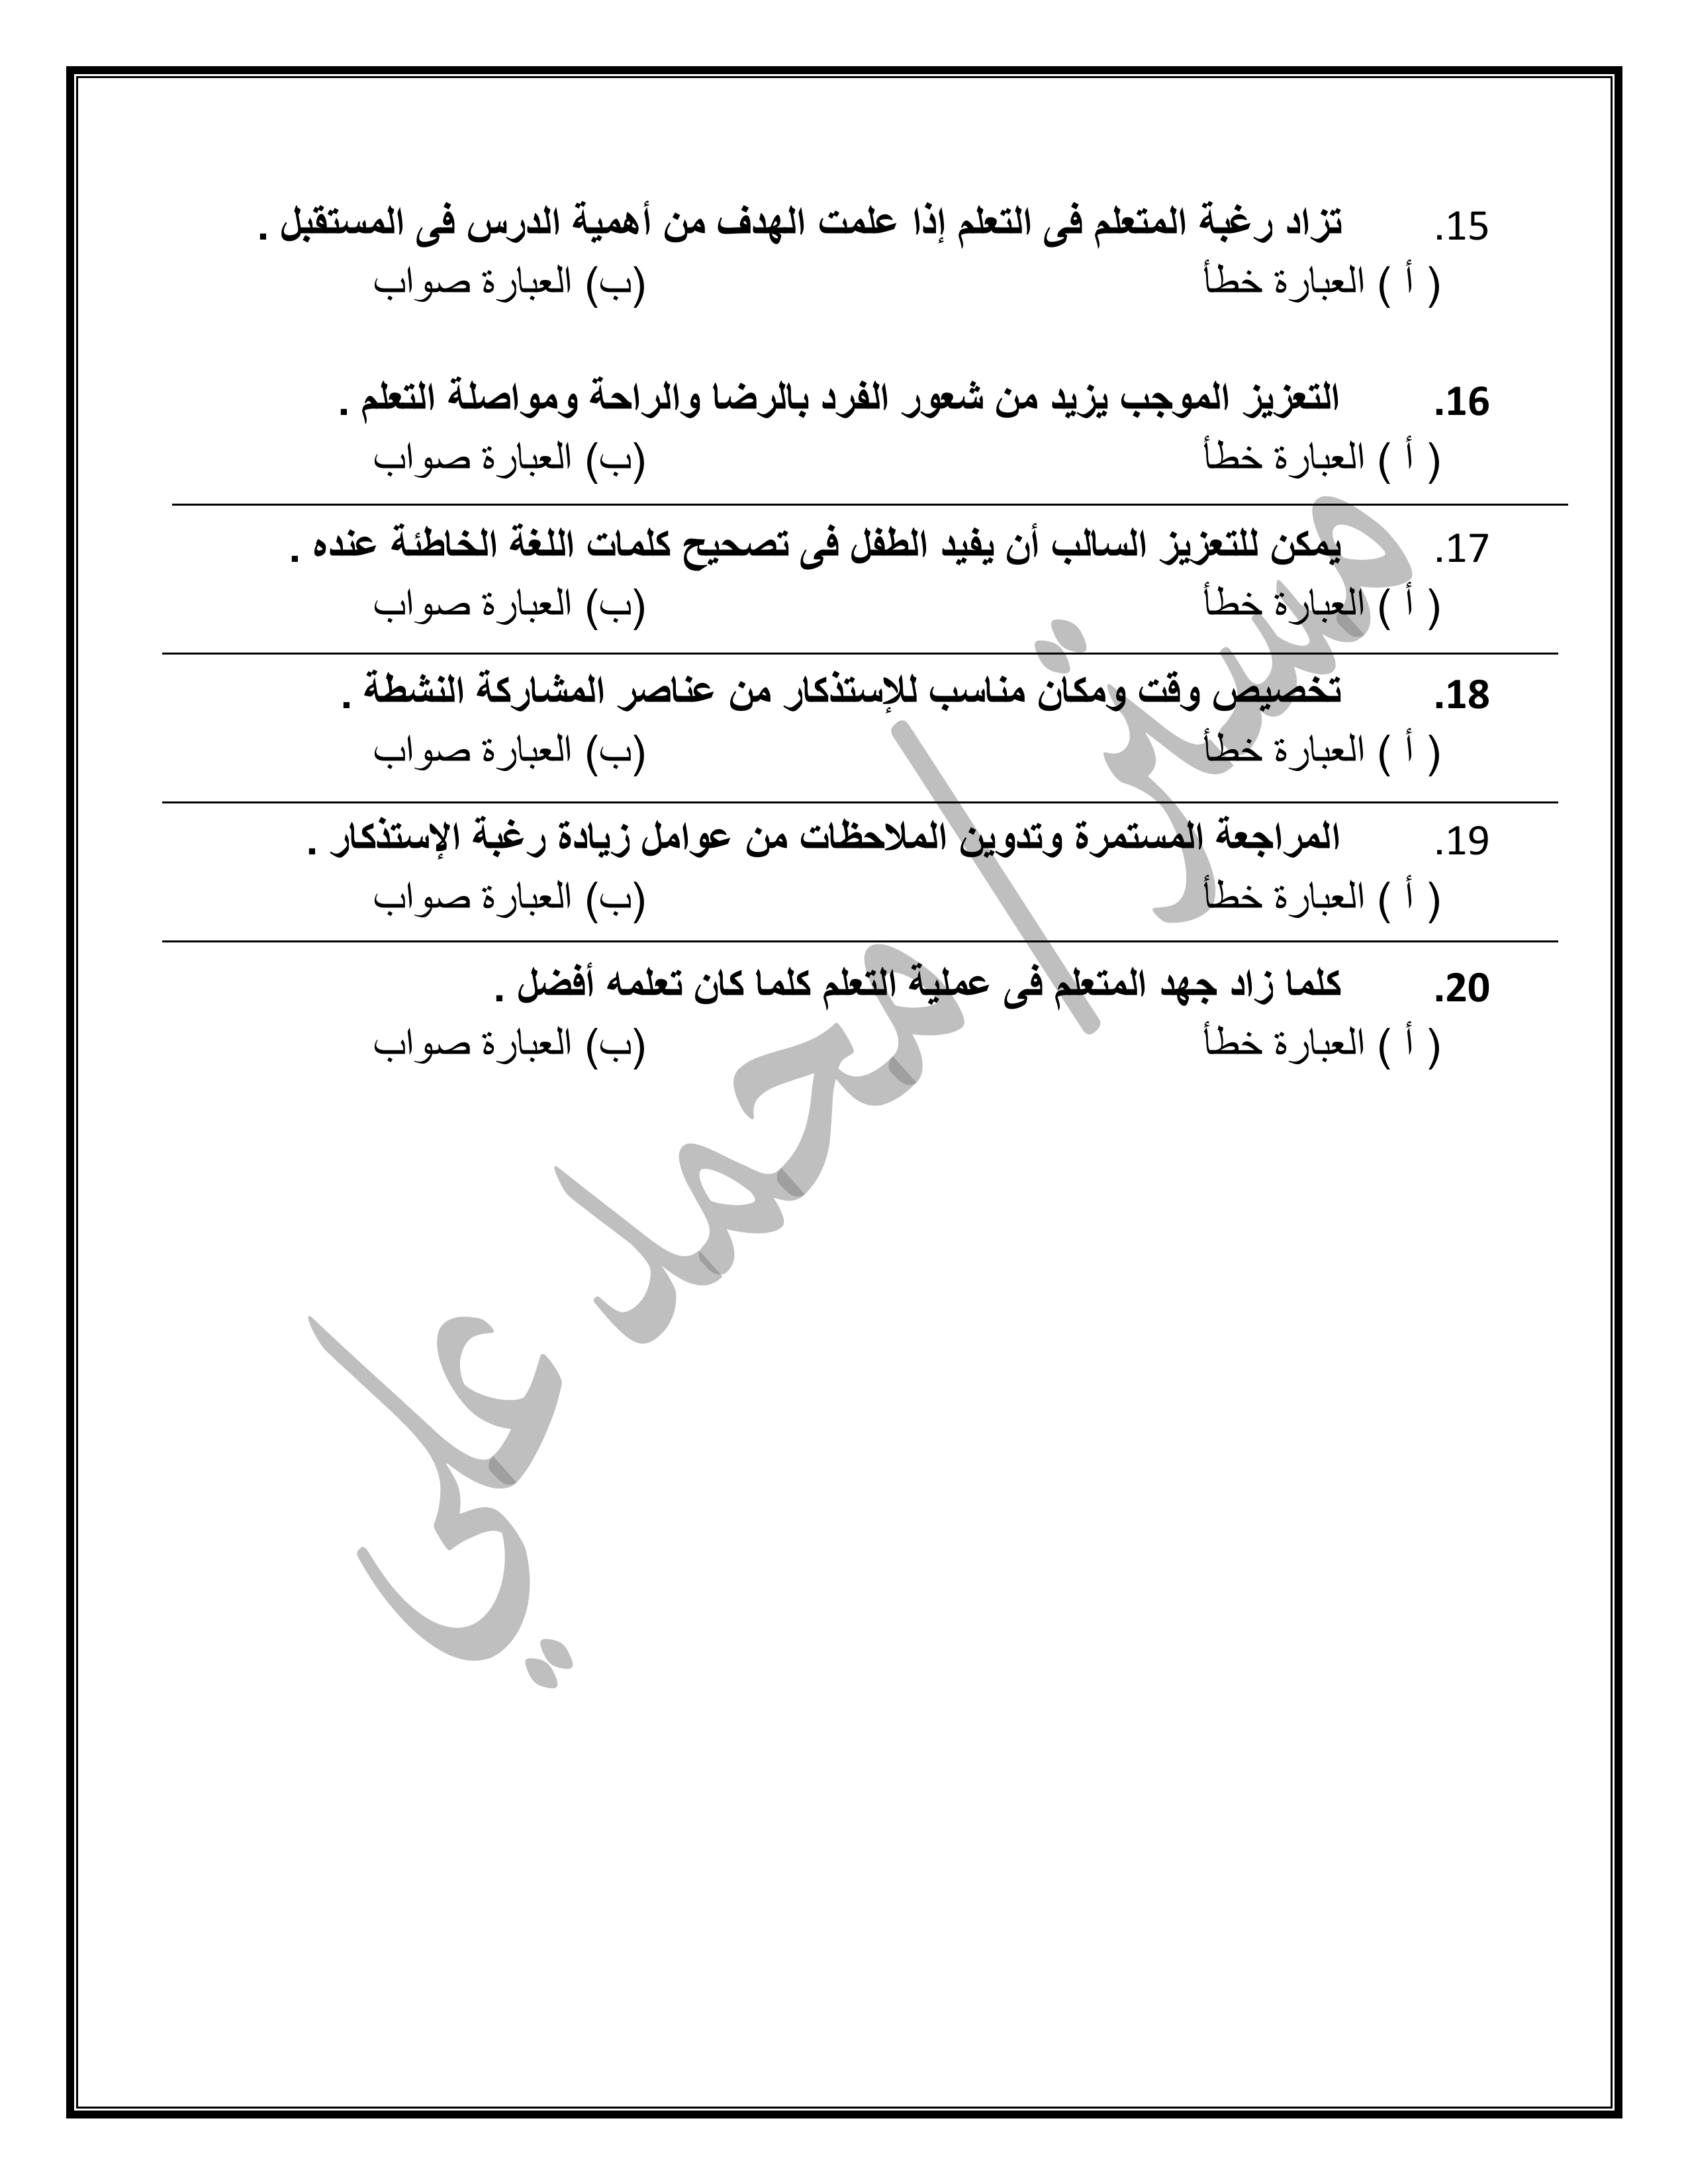 15. تزاد رغبة المتعلم فى التعلم إذا علمت الهدف من أهمية الدرس فى المستقبل .
( أ ) العبارة خطأ (ب) العبارة صواب
16. التعزيز الموجب يزيد من شعور الفرد بالرضا والراحة ومواصلة التعلم .
( أ ) العبارة خطأ (ب) العبارة صواب
17. يمكن للتعزيز السالب أن يفيد الطفل فى تصحيح كلمات اللغة الخاطئة عنده .
( أ ) العبارة خطأ (ب) العبارة صواب
18. تخصيص وقت ومكان مناسب للإستذكار من عناصر المشاركة النشطة .
( أ ) العبارة خطأ (ب) العبارة صواب
19. المراجعة المستمرة وتدوين الملاحظات من عوامل زيادة رغبة الإستذكار .
( أ ) العبارة خطأ (ب) العبارة صواب
20. كلما زاد جهد المتعلم فى عملية التعلم كلما كان تعلمه أفضل .
( أ ) العبارة خطأ (ب) العبارة صواب
مستر / محمد علي